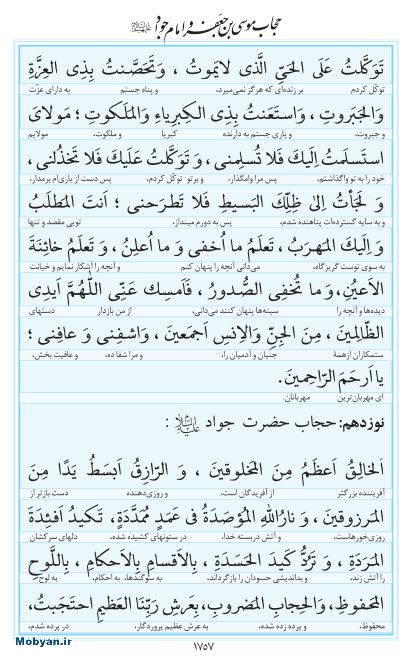 حجاب موسی بن جعفر و امام جواد علیهما السلام
تَوَکَّلتُ عَلَی الحَیِّ الَّذی لایَموتُ ، وَ تَحَصَّنتُ بِذِی العِزَّةِ
توکّل کردم بر زنده‌ای که هرگز نمی‌میرد، و پناه جستم به دارای عزّت
وَالجَبَروتِ ، وَاستَعَنتُ بِذِی الکِبرِیاءِ وَالمَلَکوتِ ؛ مَولایَ
و جبروت، و یاری جستم به دارنده کبریا و ملکوت، مولایم
استَسلَمتُ اِلَیکَ فَلا تُسلِمنی ، وَ تَوَکَّلتُ عَلَیکَ فَلا تَخذُلنی ،
خود را به تو واگذاشتم، پس مرا وامگذار، و برتو توکّل کردم، پس دست از یاری‌ام برمدار،
وَ لَجَأتُ اِلیٰ ظِلِّکَ البَسیطِ فَلا تَطرَحنی ؛ اَنتَ المَطلَبُ
و به سایه گسترده‌ات پناهنده شدم، پس به دورم مینداز، تویی مقصد و تنها
وَ اِلَیکَ المَهرَبُ ، تَعلَمُ ما اُخفی وَ ما اُعلِنُ ، وَ تَعلَمُ خائِنَةَ
به سوی توست گریزگاه، می‌دانی آنچه را پنهان کنم و آنچه را آشکار نمایم و خیانت
الاَعیُنِ، وَ ما تُخفِی الصُّدورُ ، فَاَمسِک عَنِّی اللّٰهُمَّ اَیدِی
دیده‌ها و آنچه را سینه‌ها پنهان کنند می‌دانی، از من بازدار دستهای
الظّالِمینَ ، مِنَ الجِنِّ وَالاِنسِ اَجمَعینَ ، وَاشفِنی وَ عافِنی ؛
ستمکاران از همۀ جنّیان و آدمیان را، و مرا شفا ده، و عافیت بخش،
یا اَرحَمَ الرّاحِمینَ.
ای مهربان‌ترین مهربانان.
نوزدهم: حجاب حضرت جواد علیه السلام :
اَلخالِقُ اَعظَمُ مِنَ المَخلوقینَ ، وَ الرّازِقُ اَبسَطُ یَدًا مِنَ
آفریننده بزرگتر از آفریدگان است، و روزی‌دهنده دست بازتر از
المَرزوقینَ ، وَ نارُ اللهِ المُؤصَدَةُ فی عَمَدٍ مُمَدَّدَةٍ ، تَکیدُ اَفئِدَةَ
روزی‌خورهاست، و آتش دربسته خدا، در ستونهای کشیده شده، دلهای سرکشان
المَرَدَةِ ، وَ تَرُدُّ کَیدَ الحَسَدَةِ ، بِالاَقسامِ بِالاَحکامِ ، بِاللَّوحِ
را آتش زند، و بداندیشی حسودان را بازگرداند، به سوگندها، به احکام، به لوح
المَحفوظِ ، وَالحِجابِ المَضروبِ، بِعَرشِ رَبِّنَا العَظیمِ احتَجَبتُ،
محفوظ، و پرده زده شده، به عرش عظیم پروردگار، در پرده شدم،
Mobyan.ir
۱۷۵۷